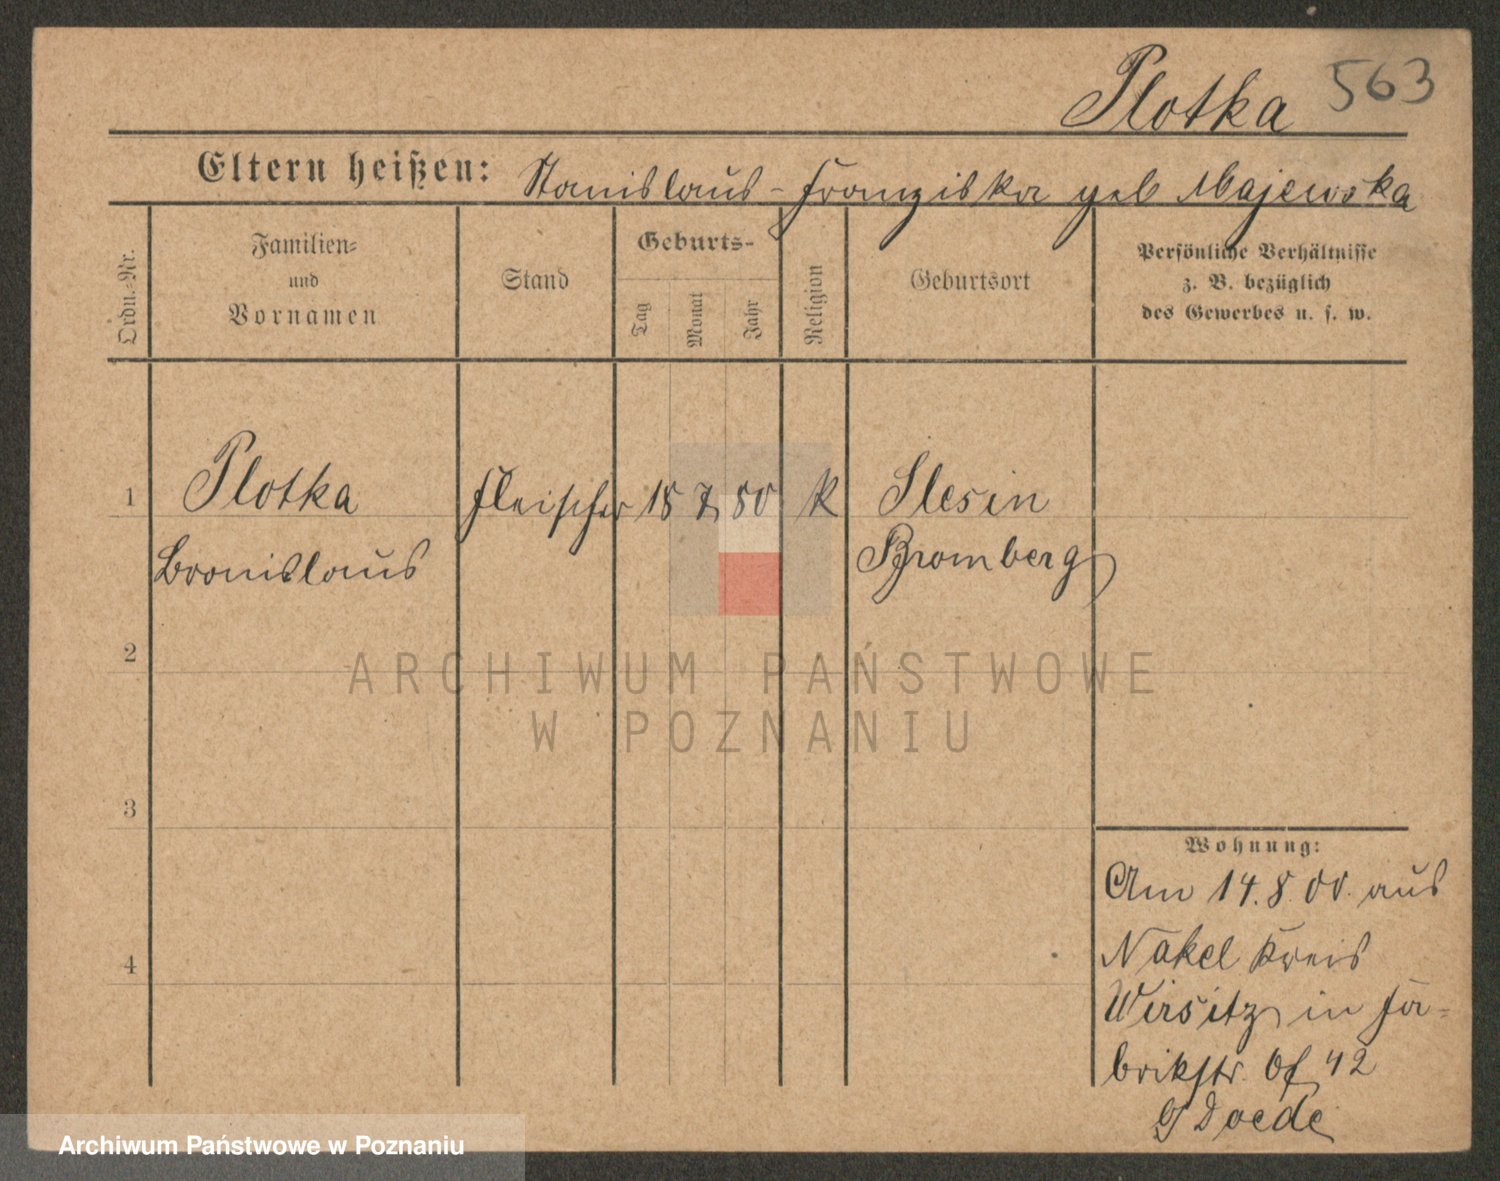 Plotka 563
Eltern heißen: Stanislaus - Franziska geb Majewska
Ordn.-Nr.
Familien-
und
Vornamen
Stand
Geburts-
Tag
Monat
Jahr
Religion
Geburtsort
Persönliche Verhältnisse
z. B. bezüglich
des Gewerbes u. s. w.
1 Plotka Fleischer 18 7 80 K Slesin
Bronislaus Bromberg
2
ARCHIWUM PAŃSTWOWE
W POZNANIU
3
Wohnung:
Am 14.8.00. aus
Nakel Kreis
4
Wirsitz in Fa-
brikstr. 42
Doede
Archiwum Państwowe w Poznaniu